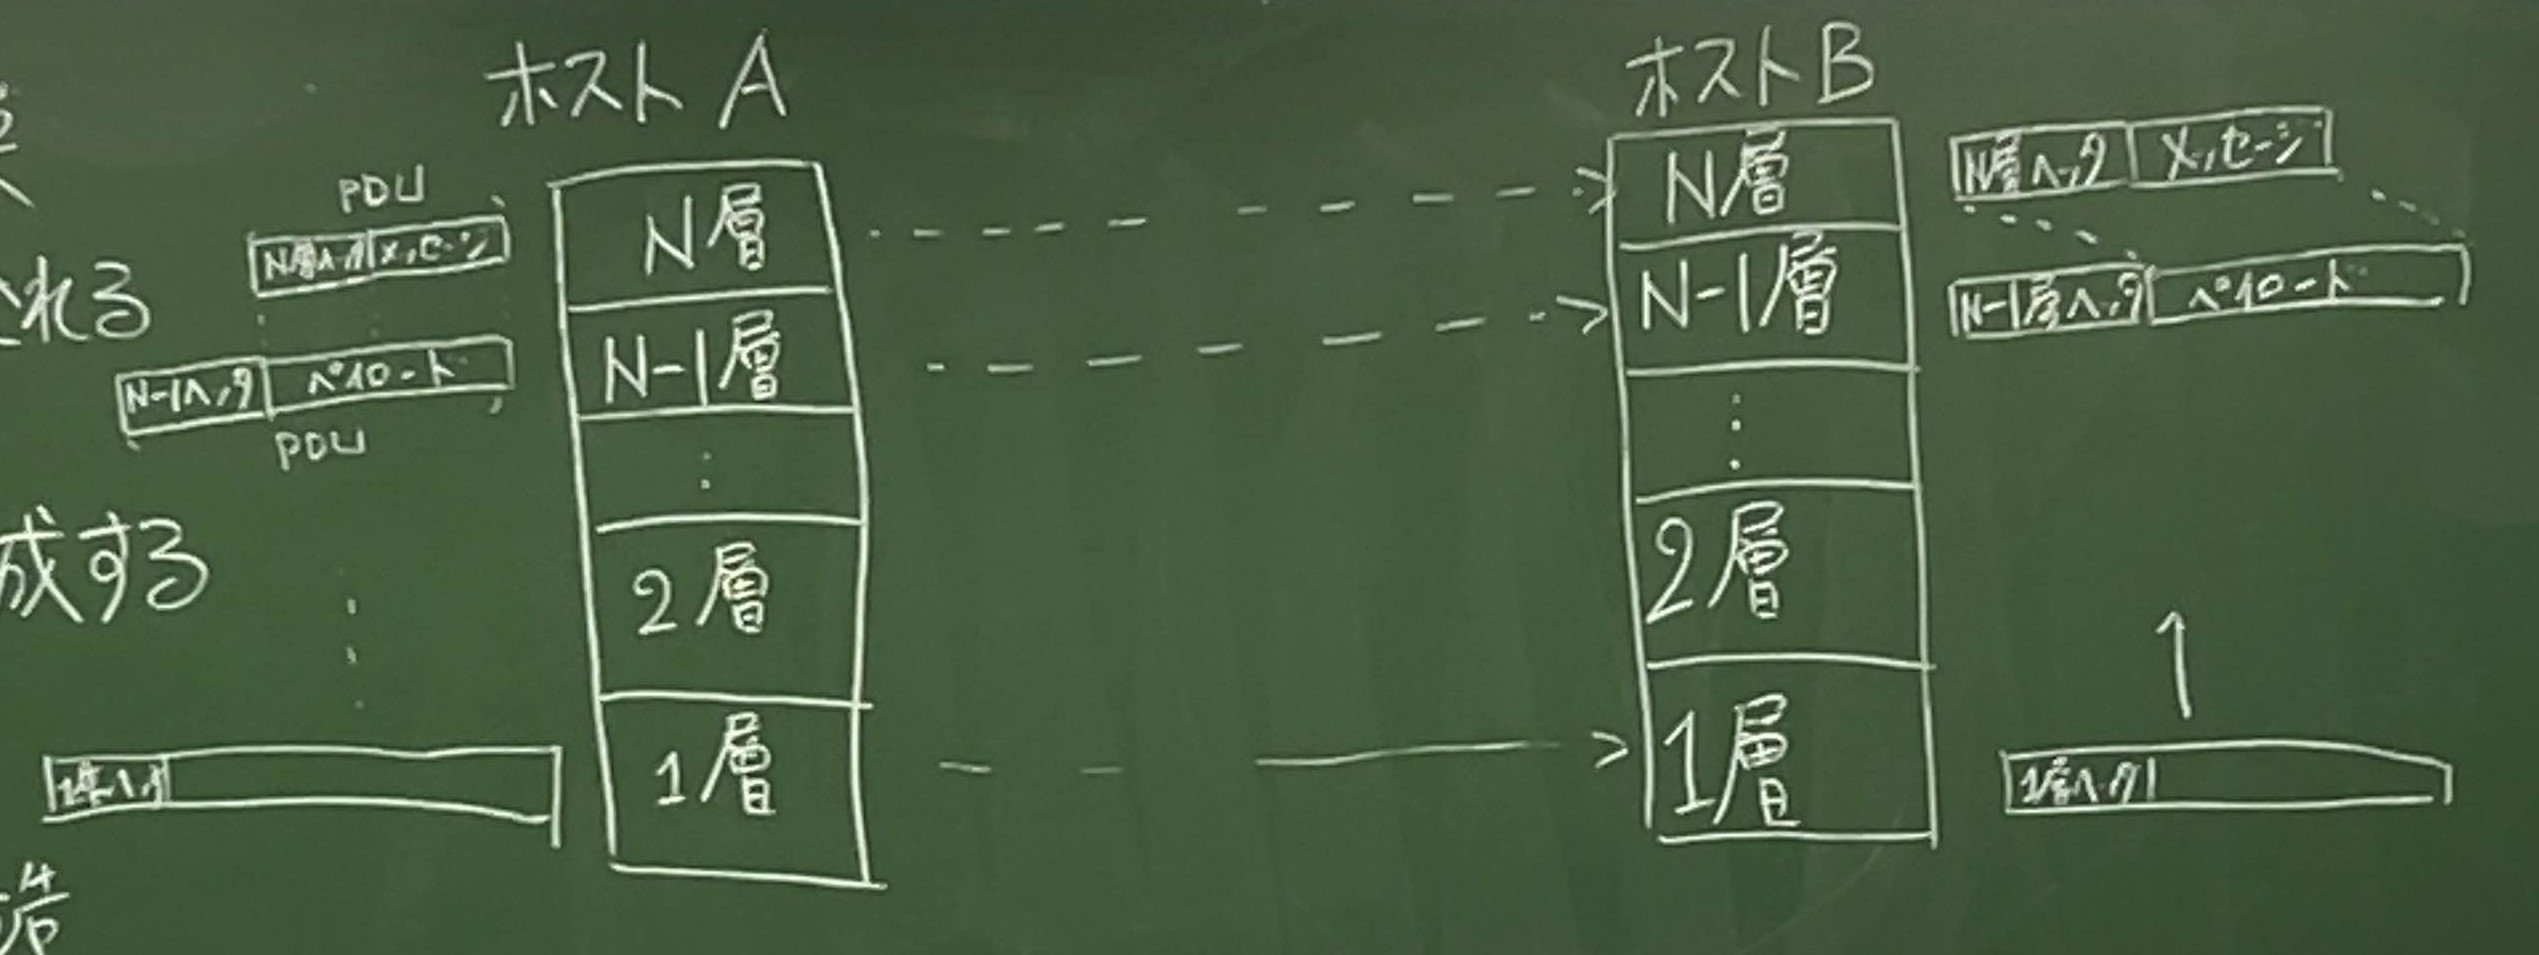 ホストA
PDU
N層ヘッダ メッセージ
N-1ヘッダ ペイロード
PDU
1層ヘッダ
N層
N-1層
⋮
2層
1層
ホストB
N層
N-1層
⋮
2層
1層
N層ヘッダ メッセージ
N-1層ヘッダ ペイロード
↑
1層ヘッダ
される
成する